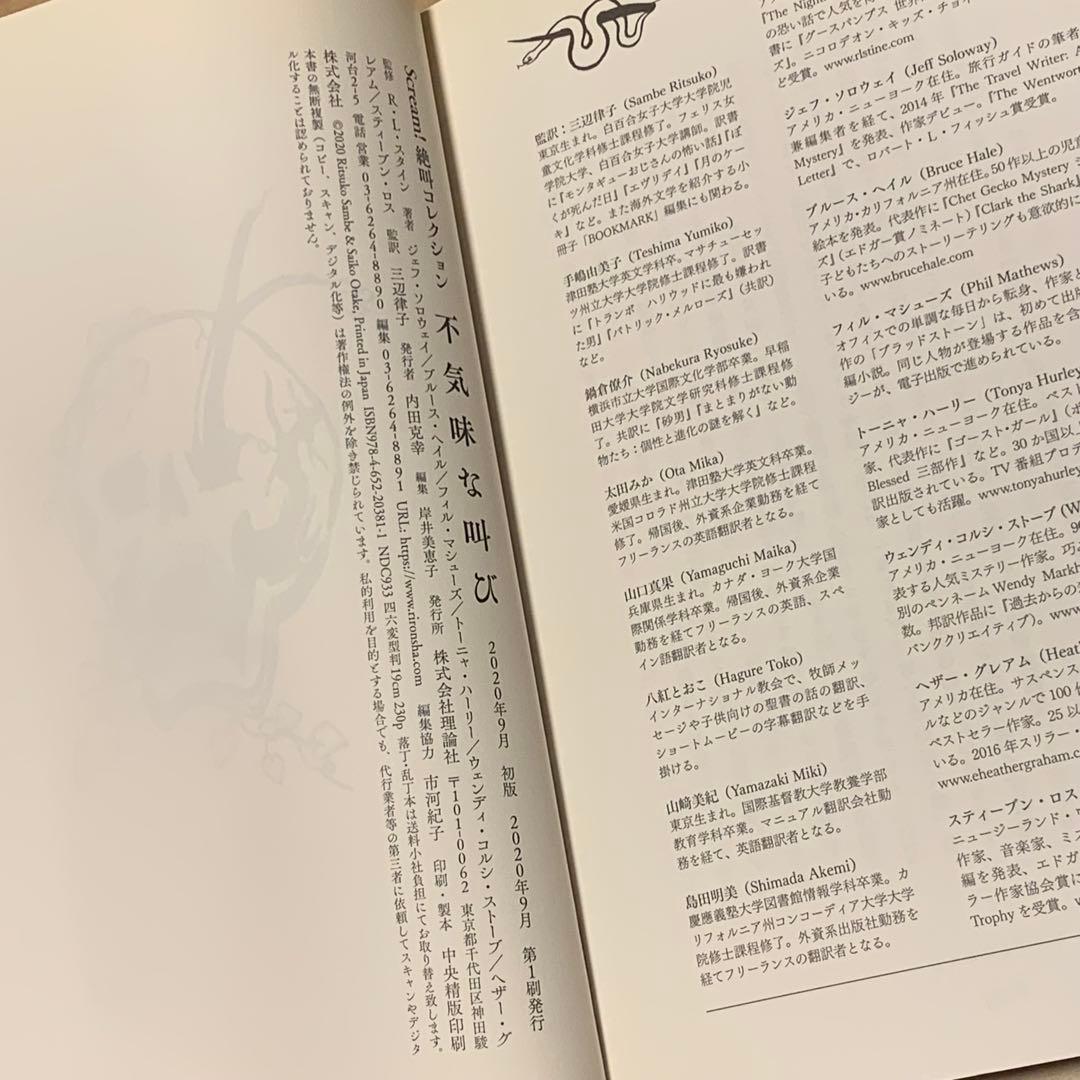 『The Nigh
の恐い話で人気を
書に『グースバンプス 世界
ズ』。ニコロデオン・キッズ・チョイ
ど受賞。www.rlstine.com
ジェフ・ソロウェイ（Jeff Soloway）
アメリカ・ニューヨーク在住。旅行ガイドの筆者
兼編集者を経て、2014年『The Travel Writer: A
Mystery』を発表、作家デビュー。『The Wentwort
Letter』で、ロバート・L・フィッシュ賞受賞。
ブルース・ヘイル（Bruce Hale）
アメリカ・カリフォルニア州在住。50作以上の児童
絵本を発表。代表作に『Chet Gecko Mystery シ
ズ』（エドガー賞ノミネート）『Clark the Shark』
子どもたちへのストーリーテリングも意欲的に
いる。www.brucehale.com
フィル・マシューズ（Phil Mathews）
オフィスでの単調な毎日から転身、作家と
作の「ブラッドストーン」は、初めて出版
編小説。同じ人物が登場する作品を含
ジーが、電子出版で進められている。
トーニャ・ハーリー（Tonya Hurley
アメリカ・ニューヨーク在住。ベスト
家、代表作に『ゴースト・ガール』（ポ
Blessed 三部作』など。30か国以上
訳出版されている。TV番組プロデ
家としても活躍。www.tonyahurley
ウェンディ・コルシ・ストーブ（W
アメリカ・ニューヨーク在住。9
表する人気ミステリー作家。巧
別のペンネーム Wendy Markh
数。邦訳作品に『過去からの
バンククリエイティブ）。www.
ヘザー・グレアム（Heat
アメリカ在住。サスペンス
ルなどのジャンルで100作
ベストセラー作家。25以
いる。2016年スリラー・
www.eheathergraham.c
スティーブン・ロス
ニュージーランド・
作家、音楽家、ミス
編を発表、エドガ
ラー作家協会賞に
Trophyを受賞。w
監訳：三辺律子（Sambe Ritsuko）
東京生まれ。白百合女子大学大学院児
童文化学科修士課程修了。フェリス女
学院大学、白百合女子大学講師。訳書
に『モンタギューおじさんの怖い話』『ぼ
くが死んだ日』『エヴリデイ』『月のケー
キ』など。また海外文学を紹介する小
冊子「BOOKMARK」編集にも関わる。
手嶋由美子（Teshima Yumiko）
津田塾大学英文学科卒。マサチューセッ
ツ州立大学大学院修士課程修了。訳書
に『トランボ ハリウッドに最も嫌われ
た男』『パトリック・メルローズ』（共訳）
など。
鍋倉僚介（Nabekura Ryosuke）
横浜市立大学国際文化学部卒業。早稲
田大学大学院文学研究科修士課程修
了。共訳に『砂男』『まとまりがない動
物たち：個性と進化の謎を解く』など。
太田みか（Ota Mika）
愛媛県生まれ。津田塾大学英文科卒業。
米国コロラド州立大学大学院修士課程
修了。帰国後、外資系企業勤務を経て
フリーランスの英語翻訳者となる。
山口真果（Yamaguchi Maika）
兵庫県生まれ。カナダ・ヨーク大学国
際関係学科卒業。帰国後、外資系企業
勤務を経てフリーランスの英語、スペ
イン語翻訳者となる。
八紅とおこ（Hagure Toko）
インターナショナル教会で、牧師メッ
セージや子供向けの聖書の話の翻訳、
ショートムービーの字幕翻訳などを手
掛ける。
山﨑美紀（Yamazaki Miki）
東京生まれ。国際基督教大学教養学部
教育学科卒業。マニュアル翻訳会社勤
務を経て、英語翻訳者となる。
島田明美（Shimada Akemi）
慶應義塾大学図書館情報学科卒業。カ
リフォルニア州コンコーディア大学大学
院修士課程修了。外資系出版社勤務を
経てフリーランスの翻訳者となる。
Scream! 絶叫コレクション 不気味な叫び 2020年9月 初版 2020年9月 第1刷発行
監修 R・L・スタイン 著者 ジェフ・ソロウェイ／ブルース・ヘイル／フィル・マシューズ／トーニャ・ハーリー／ウェンディ・コルシ・ストーブ／ヘザー・グ
レアム／スティーブン・ロス 監訳 三辺律子 発行者 内田克幸 編集 岸井美恵子 発行所 株式会社理論社 〒101-0062 東京都千代田区神田駿
河台2-5 電話 営業 03-6264-8890 編集 03-6264-8891 URL: https://www.rironsha.com 編集協力 市河紀子 印刷・製本 中央精版印刷
株式会社 ©2020 Ritsuko Sambe & Saiko Otake, Printed in Japan ISBN978-4-652-20381-1 NDC933 四六変型判 19cm 230p 落丁・乱丁本は送料小社負担にてお取り替え致します。
本書の無断複製（コピー、スキャン、デジタル化等）は著作権法の例外を除き禁じられています。私的利用を目的とする場合でも、代行業者等の第三者に依頼してスキャンやデジタ
ル化することは認められておりません。